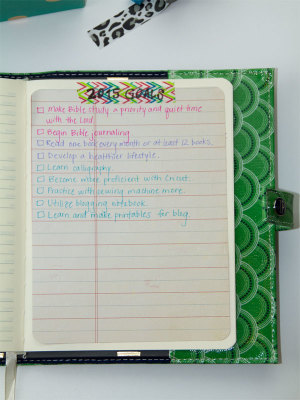 2015 GOALS
Make Bible study a priority and quiet time
with the Lord.
Begin Bible journaling
Read one book every month or at least 12 books.
Develop a healthier lifestyle.
Learn calligraphy
Become more proficient with Cricut.
Practice with sewing machine more.
Utilize blogging notebook.
Learn and make printables for blog.